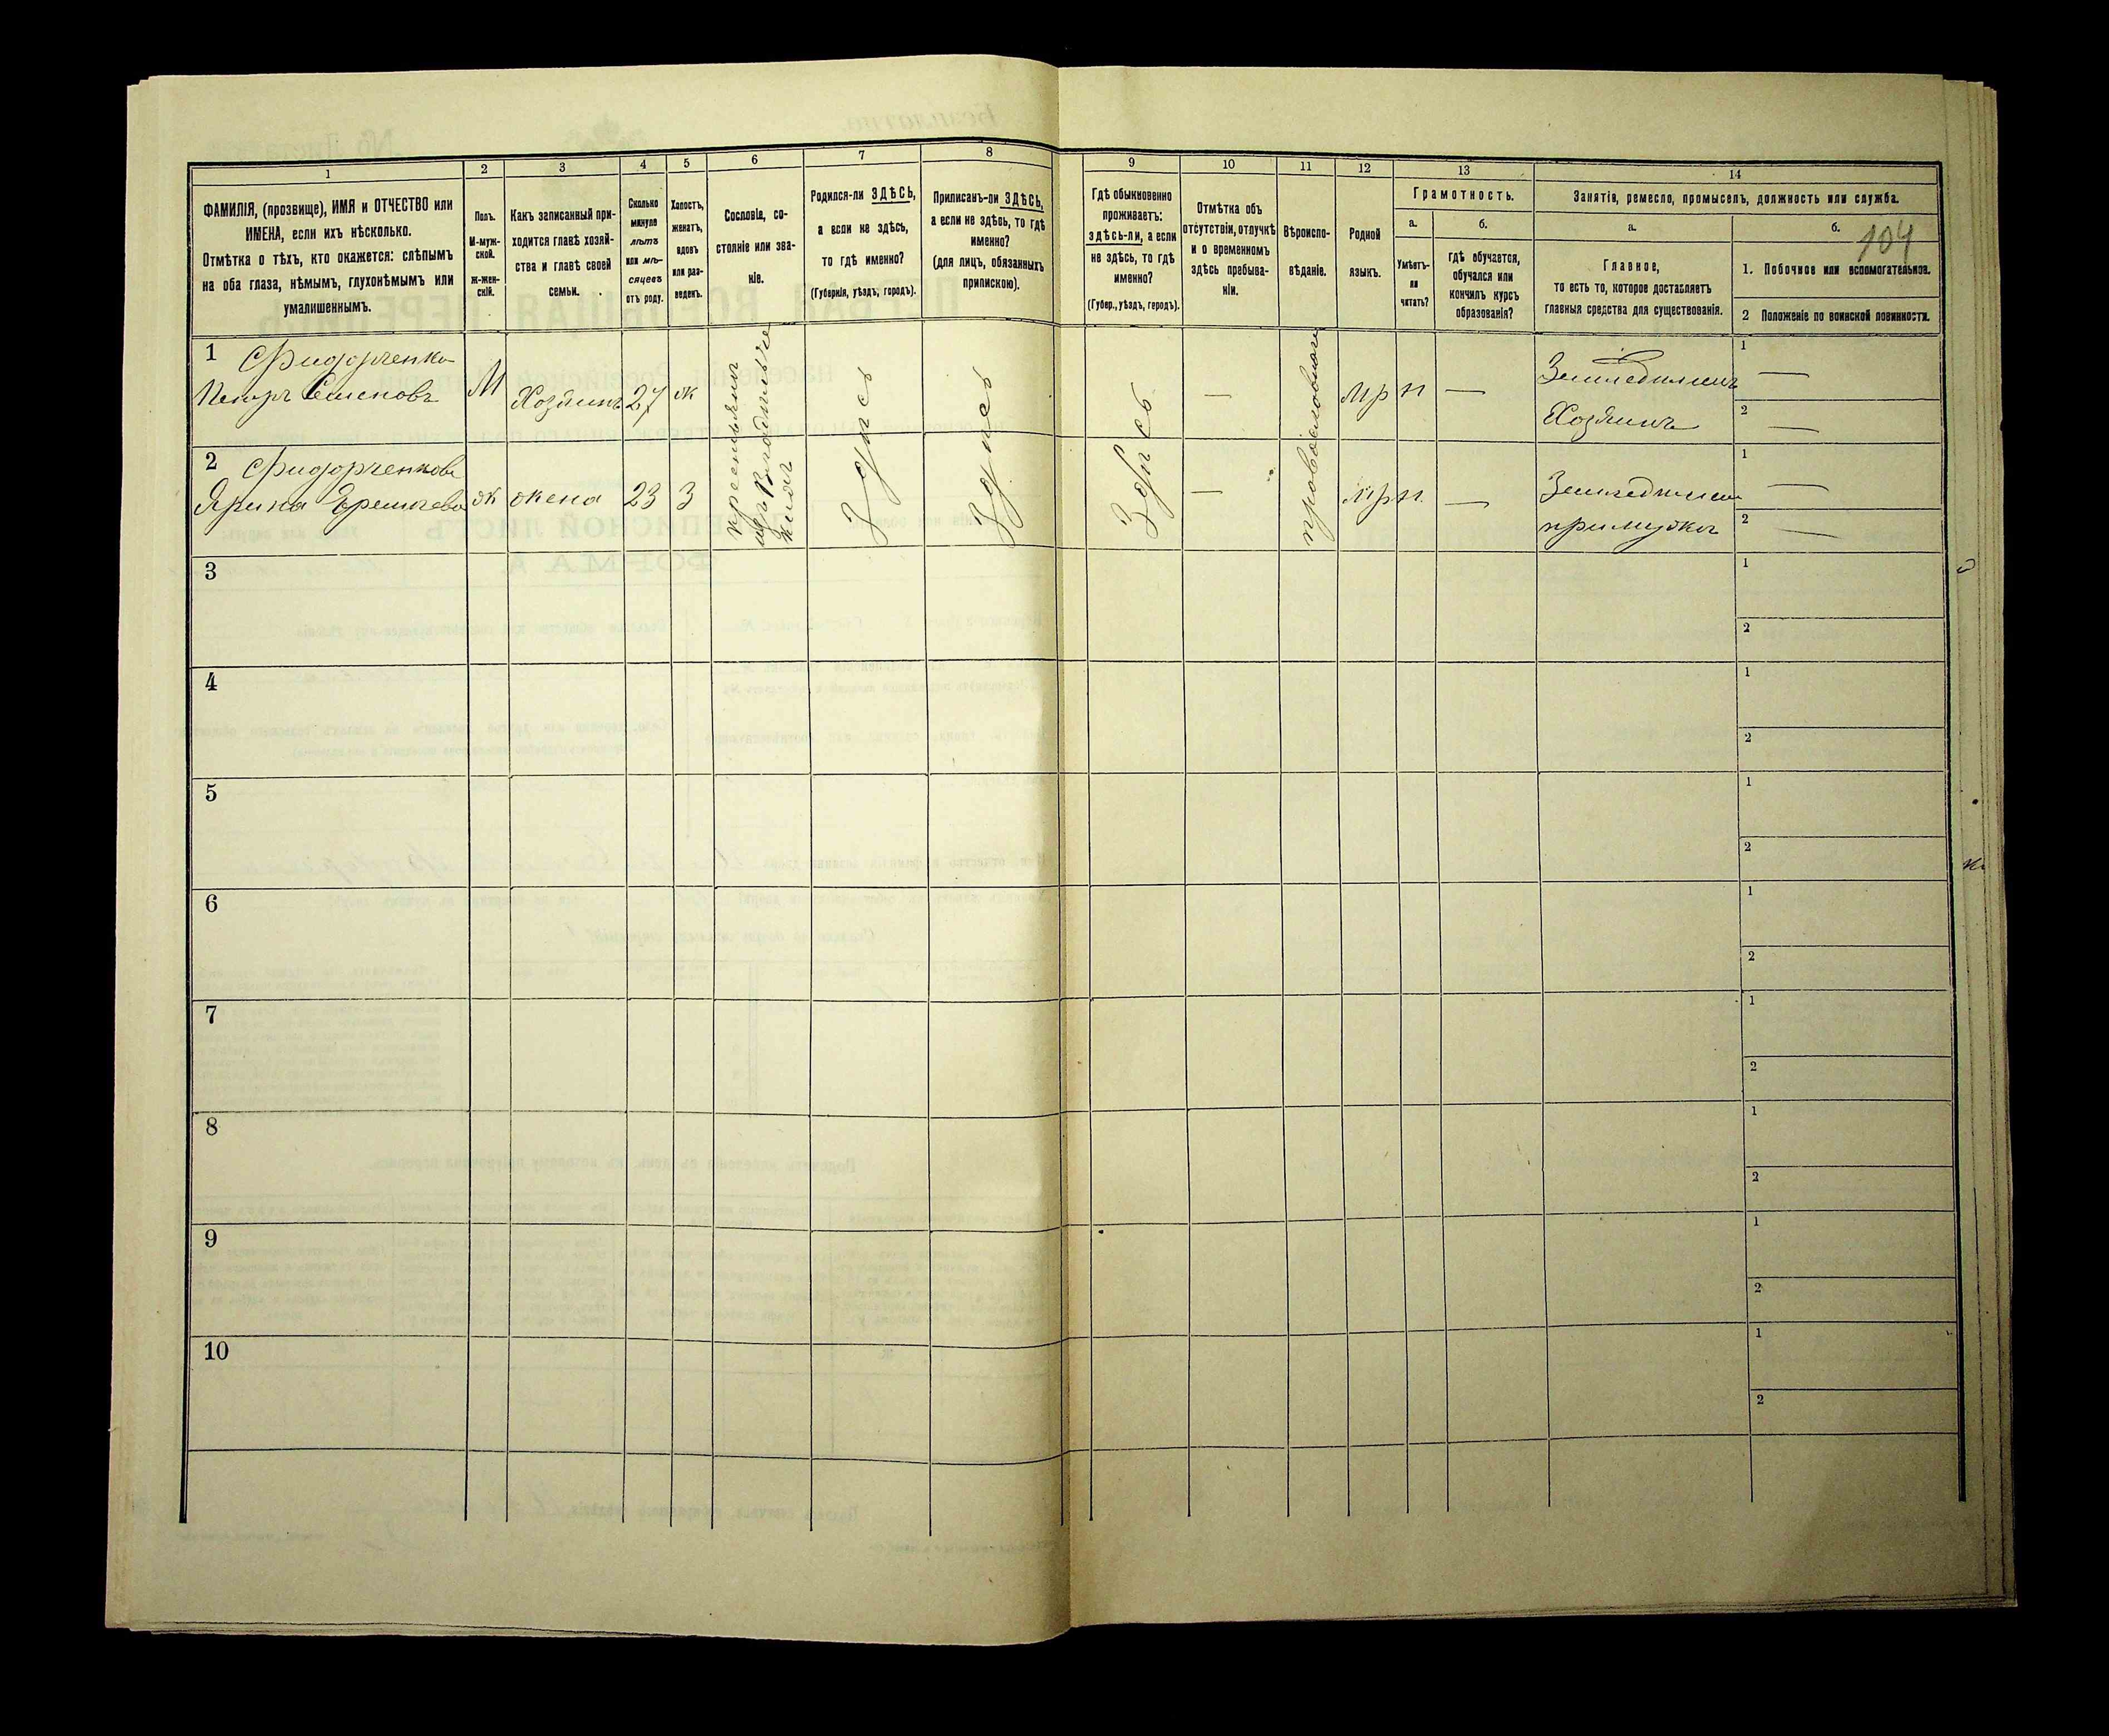 1
2
3
4
5
6
7
8
9
10
11
12
13
14
ФАМИЛІЯ, (прозвище), ИМЯ и ОТЧЕСТВО или
ИМЕНА, если ихъ нѣсколько.
Отмѣтка о тѣхъ, кто окажется: слѣпымъ
на оба глаза, нѣмымъ, глухонѣмымъ или
умалишеннымъ.
Полъ.
М-муж-
ской.
Ж-жен-
скій.
Какъ записанный при-
ходится главѣ хозяй-
ства и главѣ своей
семьи.
Сколько
минуло
лѣтъ
или мѣ-
сяцевъ
отъ роду.
Холостъ,
женатъ,
вдовъ
или раз-
веденъ.
Сословіе, со-
стояніе или зва-
ніе.
Родился-ли ЗДѢСЬ,
а если не здѣсь,
то гдѣ именно?
(Губернія, уѣздъ, городъ).
Приписанъ-ли ЗДѢСЬ,
а если не здѣсь, то гдѣ
именно?
(для лицъ, обязанныхъ
припискою).
Гдѣ обыкновенно
проживаетъ:
здѣсь-ли, а если
не здѣсь, то гдѣ
именно?
(Губер., уѣздъ, городъ).
Отмѣтка объ
отсутствіи, отлучкѣ
и о временномъ
здѣсь пребыва-
ніи.
Вѣроиспо-
вѣданіе.
Родной
языкъ.
Грамотность.
а.
б.
Умѣетъ-
ли
читать?
гдѣ обучается,
обучался или
кончилъ курсъ
образованія?
Занятіе, ремесло, промыселъ, должность или служба.
а.
б.
104
Главное,
то есть то, которое доставляетъ
главныя средства для существованія.
1. Побочное или вспомогательное.
2 Положеніе по воинской повинности.
1
Петръ Семеновъ
М
Хозяинъ
27
ж
Здѣсь
Здѣсь
Здѣсь
—
мр
н
—
Хозяинъ
1 —
2 —
2
ж
жена
23
З
—
мр
н.
—
1 —
2 —
3
1
2
4
1
2
5
1
2
6
1
2
7
1
2
8
1
2
9
1
2
10
1
2